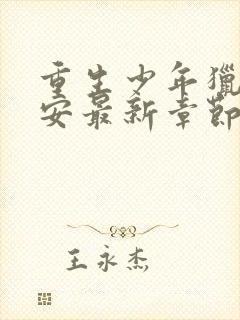 重生少年獵
安最新章節
王永杰